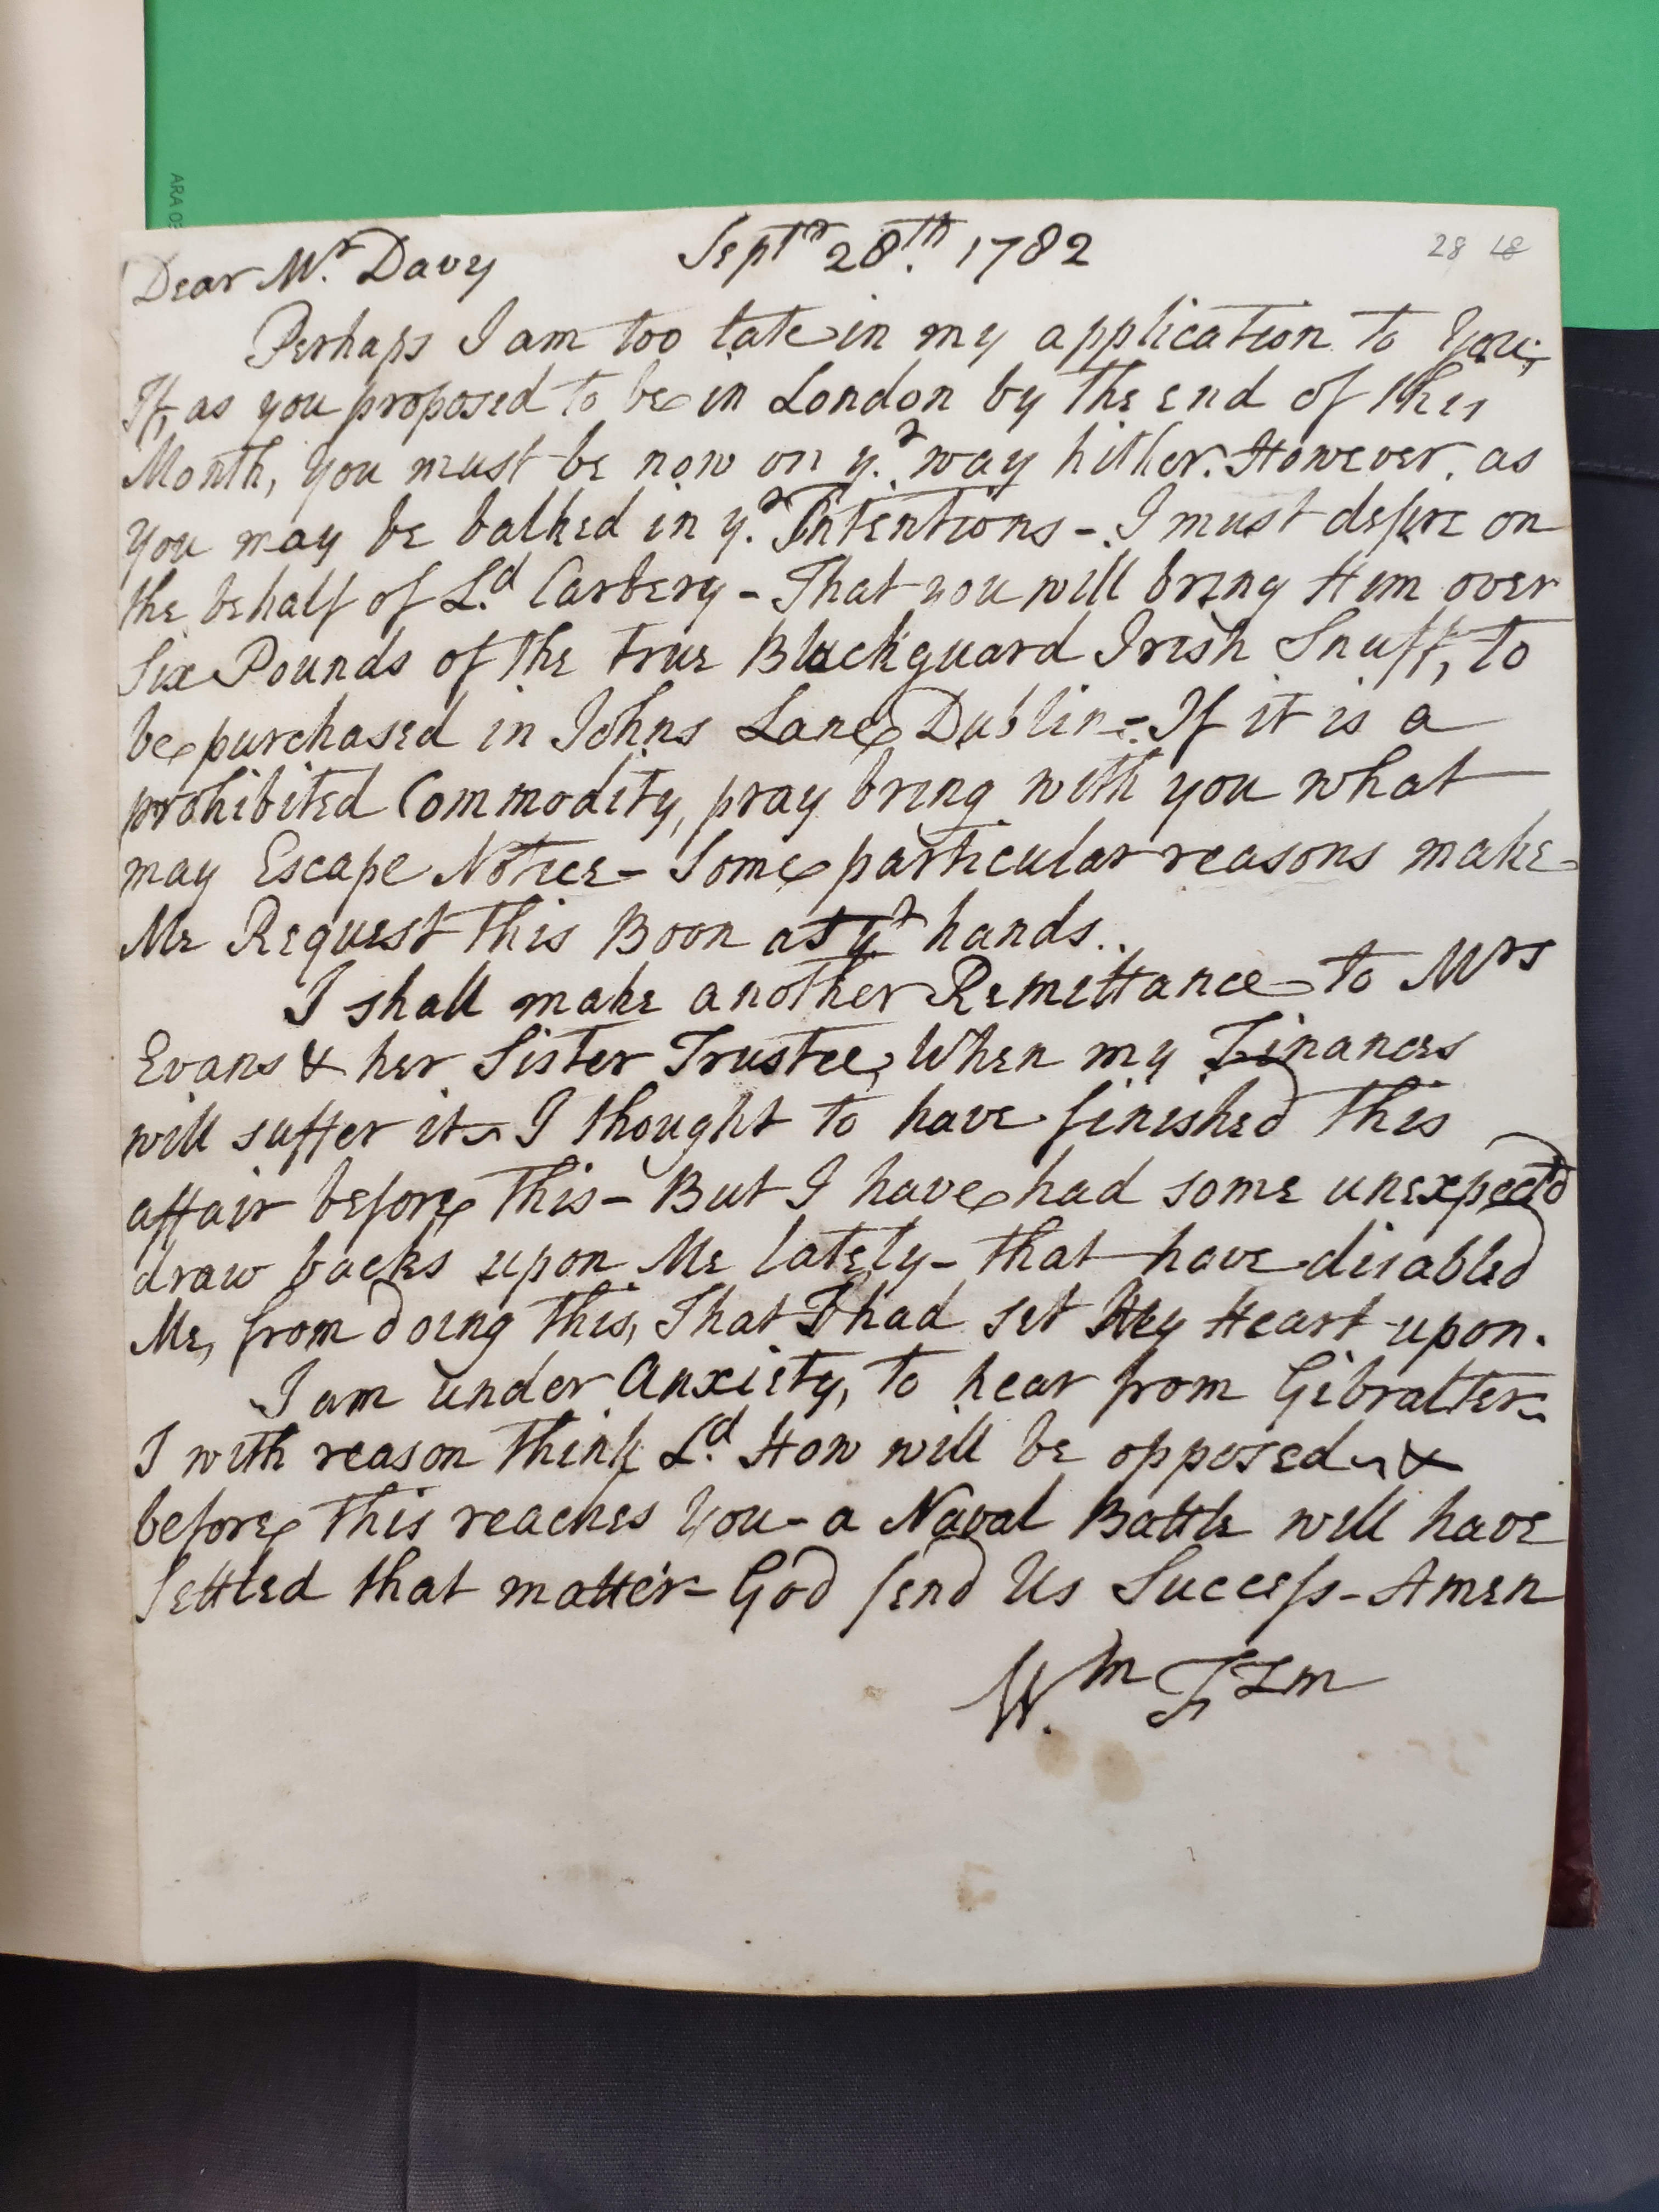 ARA 0
28 18
Dear Mr. Davy Septr 28.th 1782
Perhaps I am too late in my application to You;
If, as you proposed to be in London by the end of this
Month, you must be now on yr. way hither. However, as
you may be balked in yr. Intentions - I must desire on
the behalf of Ld. Carbery - That you will bring Him over
Six Pounds of the true Blackguard Irish Snuff, to
be purchased in Johns Lane Dublin - If it is a
prohibited Commodity, pray bring with you what
may Escape Notice - Some particular reasons make
Me Request this Boon at yr. hands..
I shall make another Remittance to Mrs
Evans & her Sister Trustee, When my Finances
will suffer it ~ I thought to have finished this
affair before this - But I have had some unexpectd
draw backs upon Me lately - that have disabled
Me, from doing this, That I had set My Heart upon.
I am under Anxiety, to hear from Gibralter ~
I with reason think Ld. How will be opposed ~ &
before this reaches You - a Naval Battle will have
Settled that matter - God send Us Success - Amen
Wm.